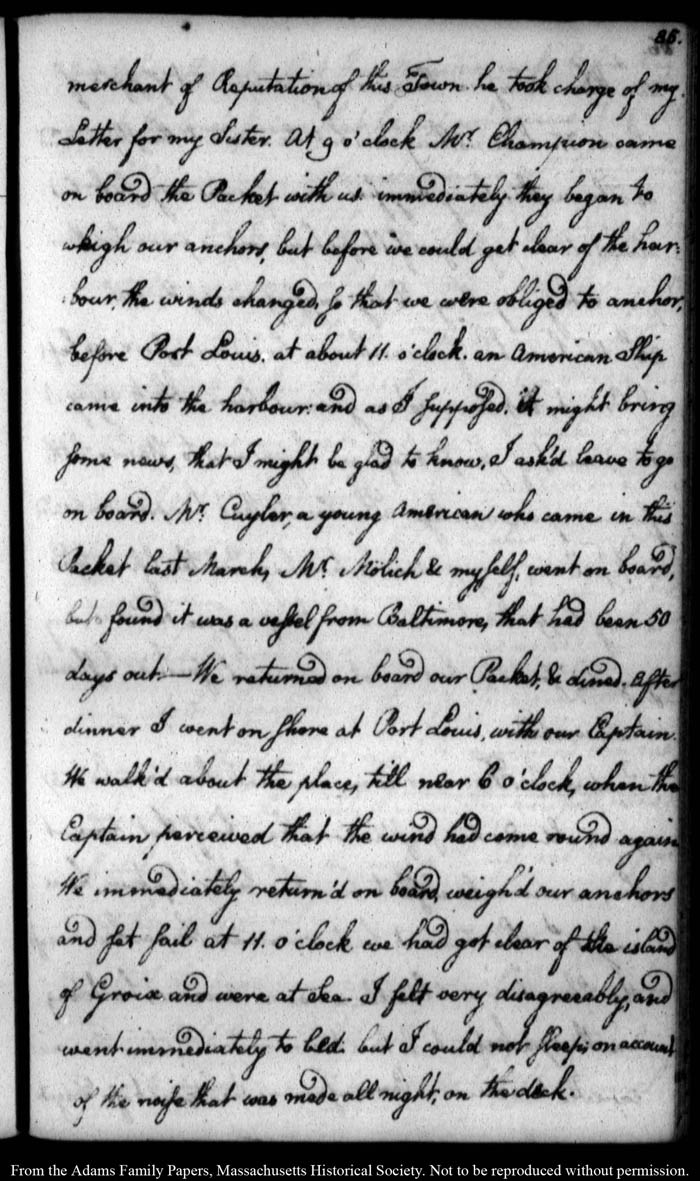 85.
merchant of Reputation of this Town. he took charge of my
Letter for my Sister. At 9 o'clock Mr. Champion came
on board the Packet with us. immediately they began to
weigh our anchors, but before we could get clear of the har:
:bour, the winds changed, so that we were obliged to anchor,
before Port Louis. at about 11. o'clock. an American Ship
came into the harbour: and as I supposed, it might bring
some news, that I might be glad to know, I ask'd leave to go
on board. Mr. Cuyler, a young American who came in this
Packet last March, Mr. Molich & myself, went on board,
but found it was a vessel from Baltimore, that had been 50
days out.—We returned on board our Packet, & dined. After
dinner I went on shore at Port Louis, with our Captain.
We walk'd about the place, till near 6 o'clock, when the
Captain perceived that the wind had come round again
We immediately return'd on board, weigh'd our anchors
and set sail at 11. o'clock we had got clear of the island
of Groix and were at Sea. I felt very disagreeably, and
went immediately to bed. but I could not sleep, on account
of the noise that was made all night, on the deck.
From the Adams Family Papers, Massachusetts Historical Society. Not to be reproduced without permission.